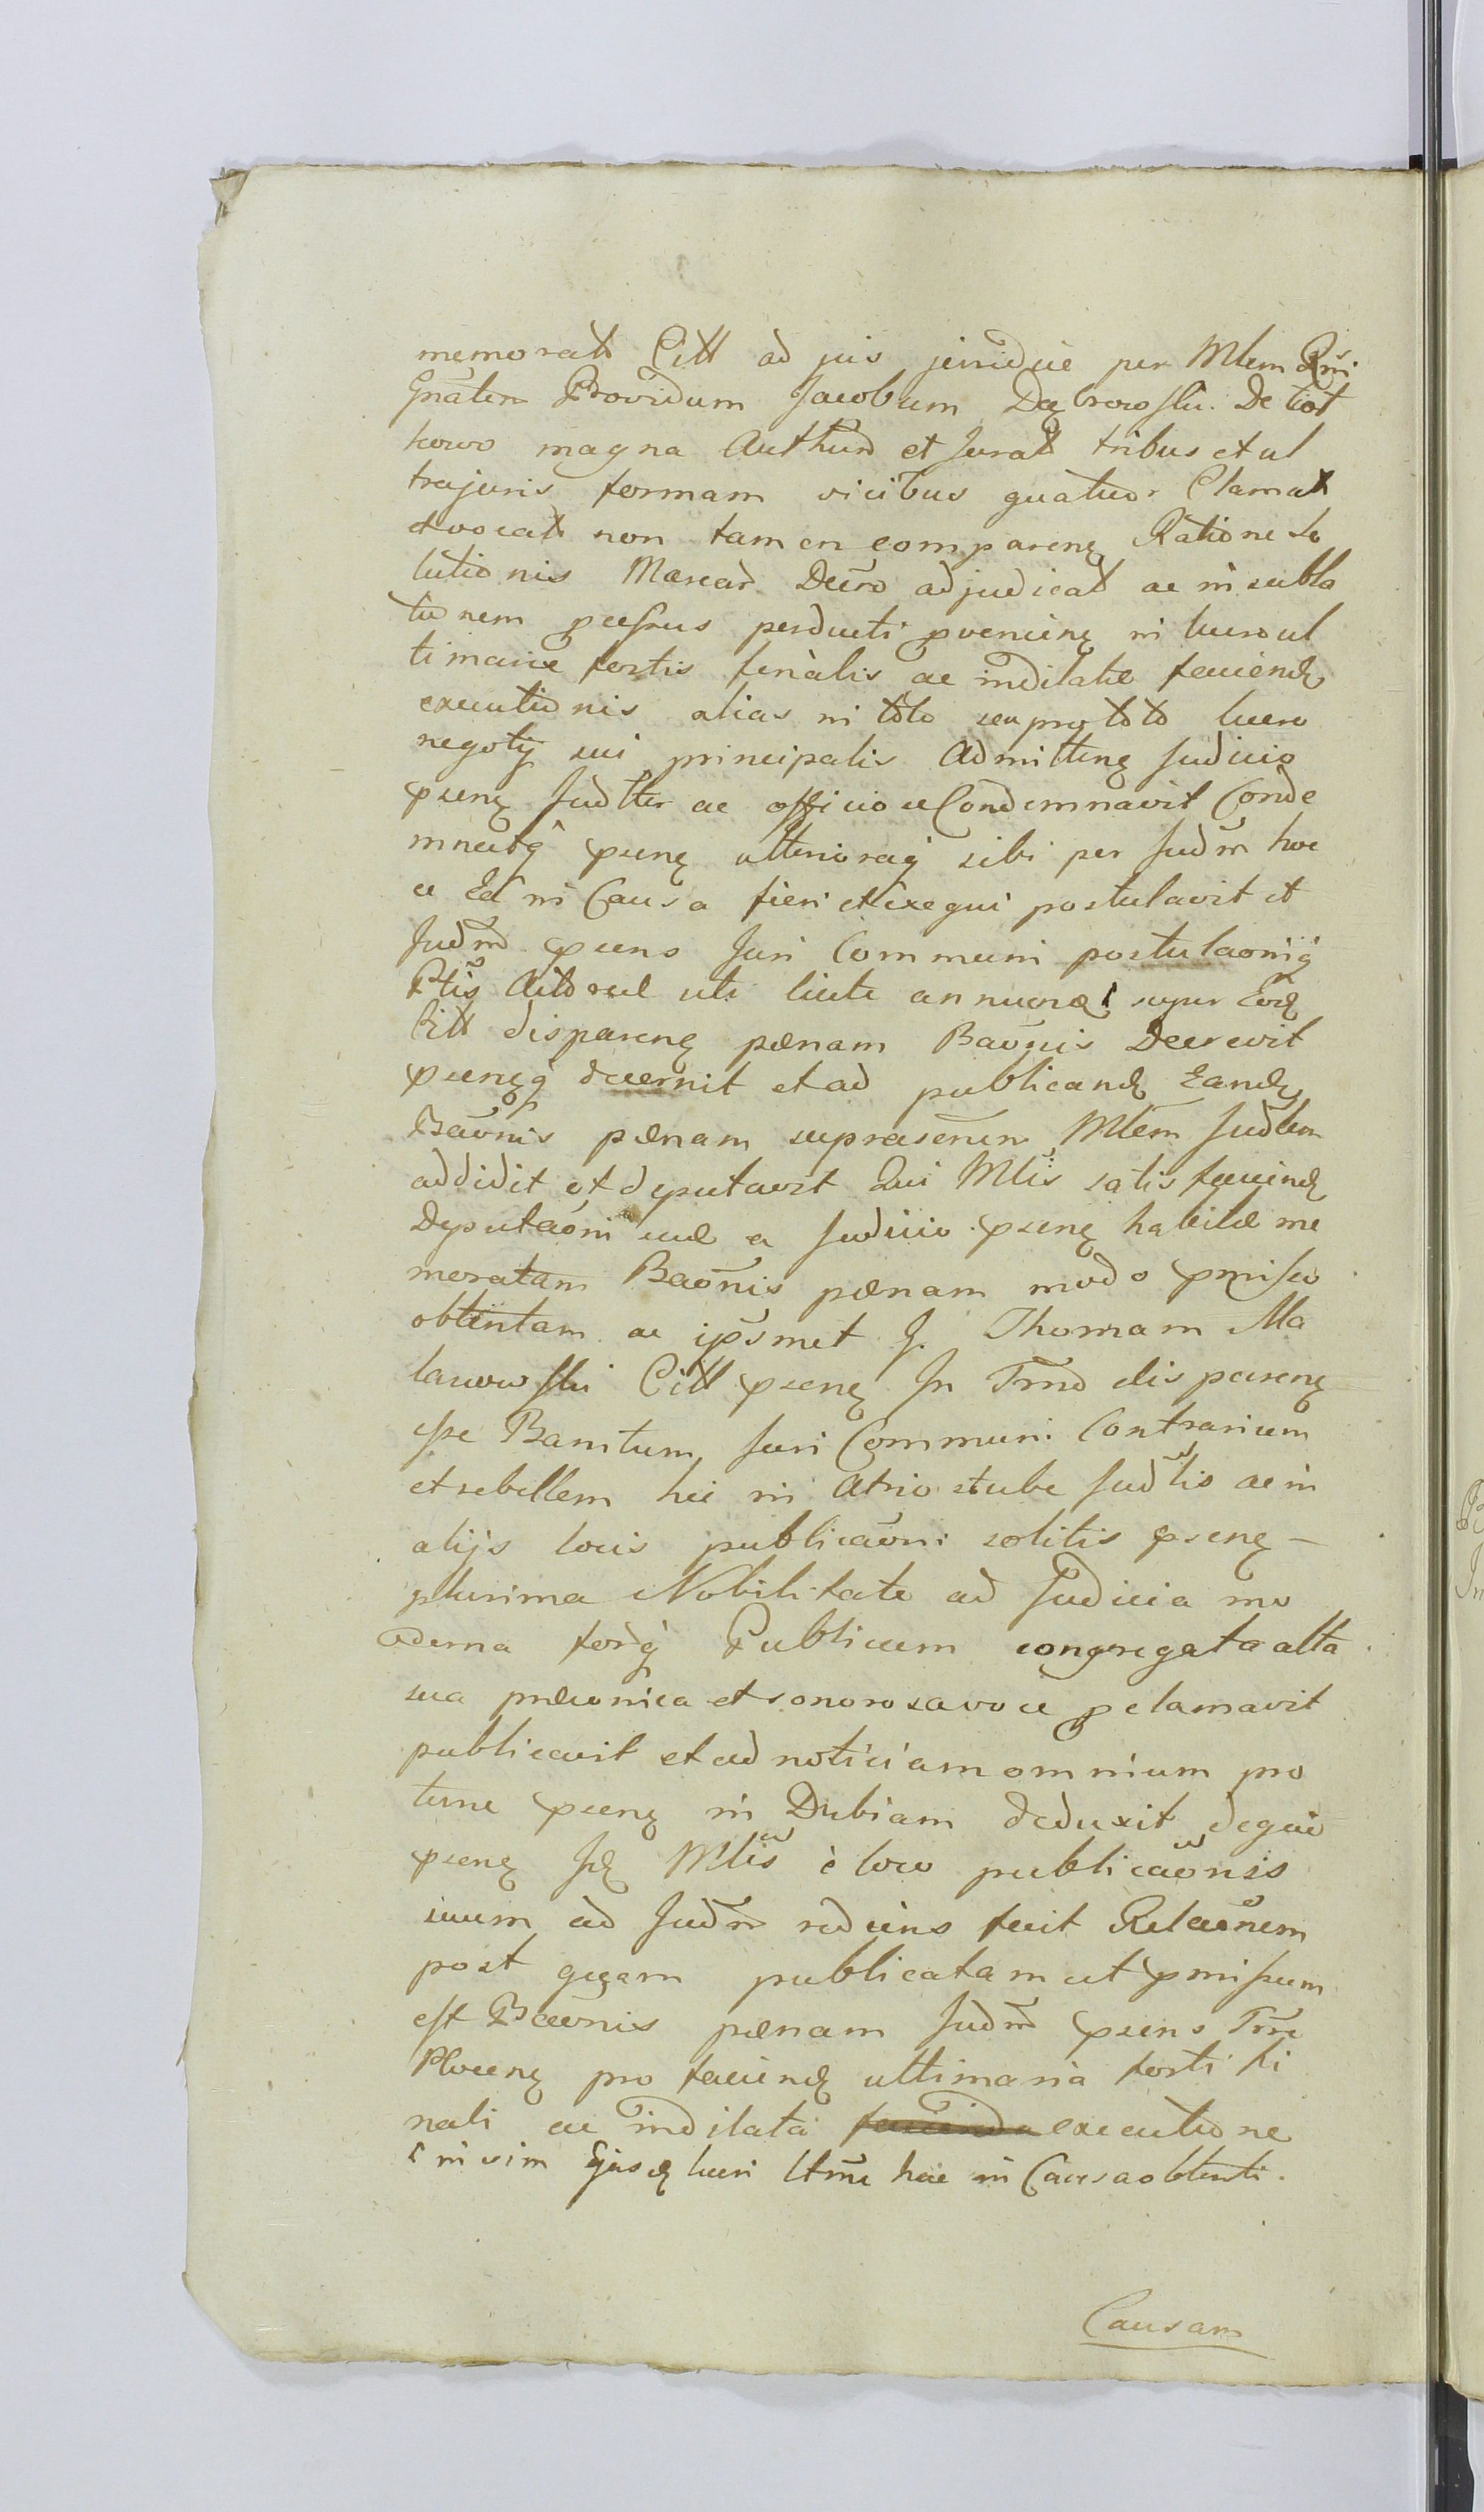 memorat Citt ad jus juridice per Mlem Rñi
Gnãlem Providum Jacobum Dąbrowski De
howo magna Authund et Jurat tribus et ul
trajuris formam vicibus quatuor Clamat
et vocat non tamen comparenę Ratione So
lutionis Marcar Decro adjudicat ac in subla
tionem pcessus perducti pvenienę in lucro ul
timariæ fortis finalis ac indilatæ faciendę
executionis alias in toto seu pro toto lucro
negotij sui principalis Admittenę Judicio
psenę Judtter ac officiose Condemnavit Conde
mnatq psenę ulterioraq sibi per Judm hoc
ce Ea in Causa fieri et exequi postulavit et
Judm psens Juri Communi postulaonijq
Ptis Actoreæ uti licite annuendo super Eodę
Citt disparenę pænam Baõnis Decrevit
psenęq decernit et ad publicandę Eandę
Baõnis pænam suprascrin Mlem Judlem
addidit et deputavit Qui Mlis satis faciendę
Deputaõni suæ a Judicio psenę habitæ me
moratam Baõnis pænam modo pmisso
obtentam ac ipsmet G. Thomam Ma
Citt psenę In Trño disparenę
esse Banitum Juri Communi Contrarium
et rebellem hic in Atrio stubæ Judlis ac in
alijs locis publicaõni solitis psenę –
plurima Nobilitate ad Judicia mo
derna forq Publicum congregata alta
sua præconica et sonorosa voce pclamavit
publicavit et ad noticiam omnium pro
tunc psenę in Dubiam deduxit dequo
psenę Idę Mlis è loco publicaõnis
suum ad Judm rediens fecit Relaõnem
post quam publicatam ut pmissum
est Baõnis pænam Judm psens Trre
Plocenę pro faciendę ultimaria forti fi
nali ac indilata executione
in vim Ejusdę lucri Itme hac in Causa obtenti.
Causam